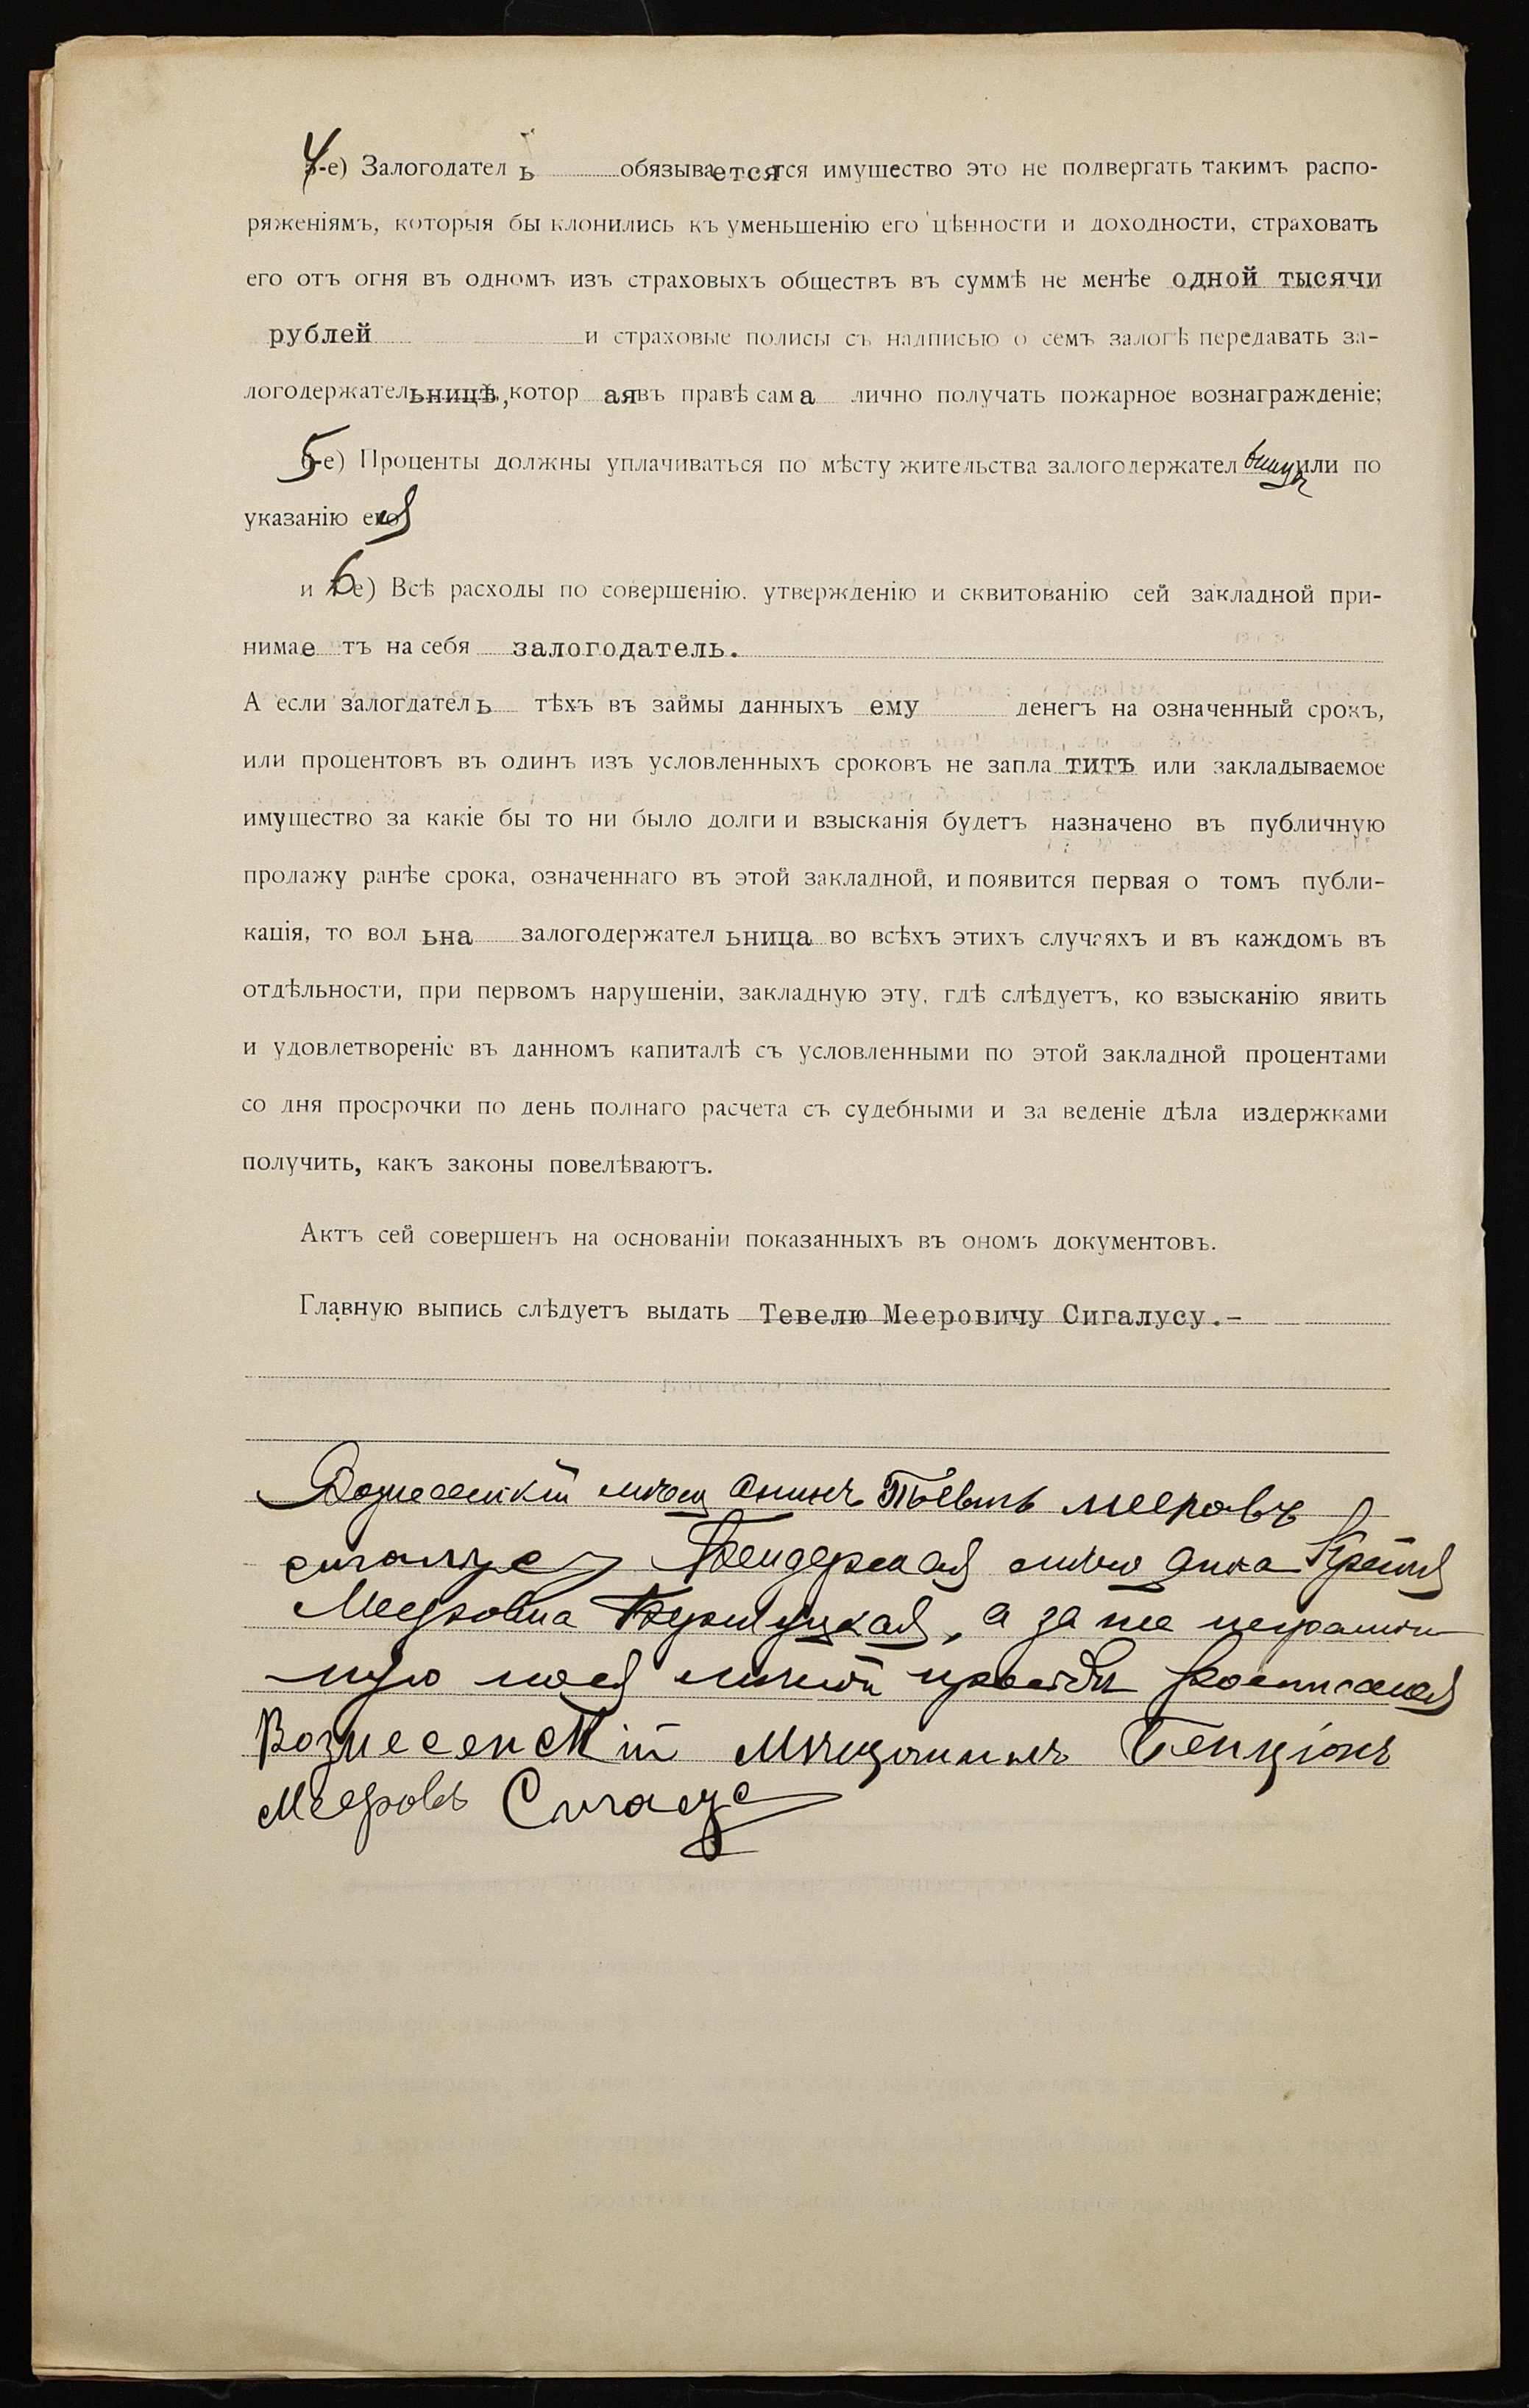 4-е) Залогодатель обязывается имущество это не подвергать такимъ распо-
ряженіямъ, которыя бы клонились къ уменьшенію его цѣнности и доходности, страховать
его отъ огня въ одномъ изъ страховыхъ обществъ въ суммѣ не менѣе одной тысячи
рублей и страховые полисы съ надписью о семъ залогѣ передавать за-
логодержательницѣ, котор ая въ правѣ сама лично получать пожарное вознагражденіе;
5-е) Проценты должны уплачиваться по мѣсту жительства залогодержательницы или по
указанію ея
и 6е) Всѣ расходы по совершенію. утвержденію и сквитованію сей закладной при-
нимае тъ на себя залогодатель.
А если залогдатель тѣхъ въ займы данныхъ ему денегъ на означенный срокъ,
или процентовъ въ одинъ изъ условленныхъ сроковъ не запла титъ или закладываемое
имущество за какіе бы то ни было долги и взысканія будетъ назначено въ публичную
продажу ранѣе срока, означеннаго въ этой закладной, и появится первая о томъ публи-
кація, то вол ьна залогодержател ьница во всѣхъ этихъ случаяхъ и въ каждомъ въ
отдѣльности, при первомъ нарушеніи, закладную эту, гдѣ слѣдуетъ, ко взысканію явить
и удовлетвореніе въ данномъ капиталѣ съ условленными по этой закладной процентами
со дня просрочки по день полнаго расчета съ судебными и за веденіе дѣла издержками
получить, какъ законы повелѣваютъ.
Актъ сей совершенъ на основаніи показанныхъ въ ономъ документовъ.
Главную выпись слѣдуетъ выдать Тевелю Мееровичу Сигалусу.-
Вознесенскій мѣщанинъ Тевель Мееровъ
Сигалусъ Бендерская мѣщанка Крейня
Мееровна, а за нее неграмот
ную по ея личной просьбѣ росписался
Вознесенскій Мѣщанинъ Бенціонъ
Мееровъ Сигалусъ